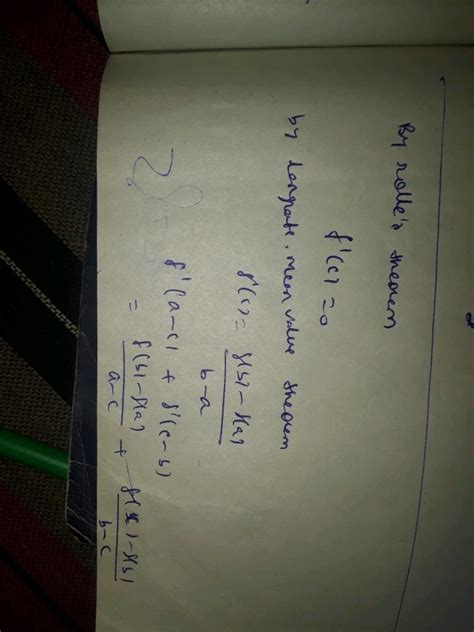 By rolle's theorem
f'(c) = 0
by langrate mean value theorem
f'(c) = f(b) - f(a) / b-a
f'(a-c) + f'(c-b)
= f(b) - f(a) / a-c + - f(b) / b-c